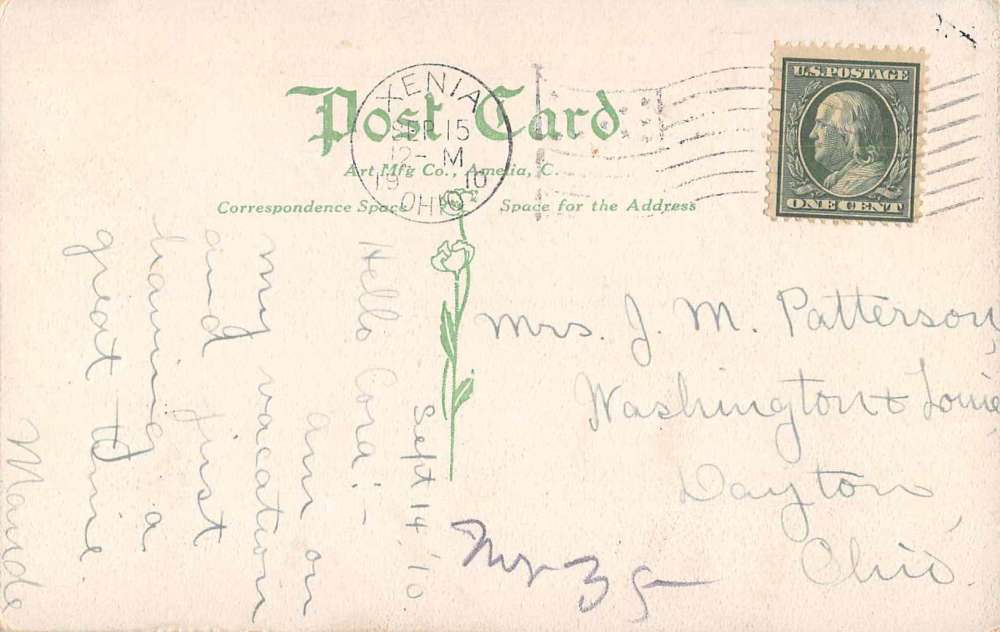 Post Card
Art Mfg Co., Amelia, O.
Correspondence Space
Space for the Address
XENIA
SEP 15
12- M
1910
OHIO
U.S. POSTAGE
ONE CENT
Sept 14, '10
Hello Cora:-
am on
my vacation
and just
having a
great time
Maude
Mrs. J. M. Patterson,
Washington &
Dayton,
Ohio.